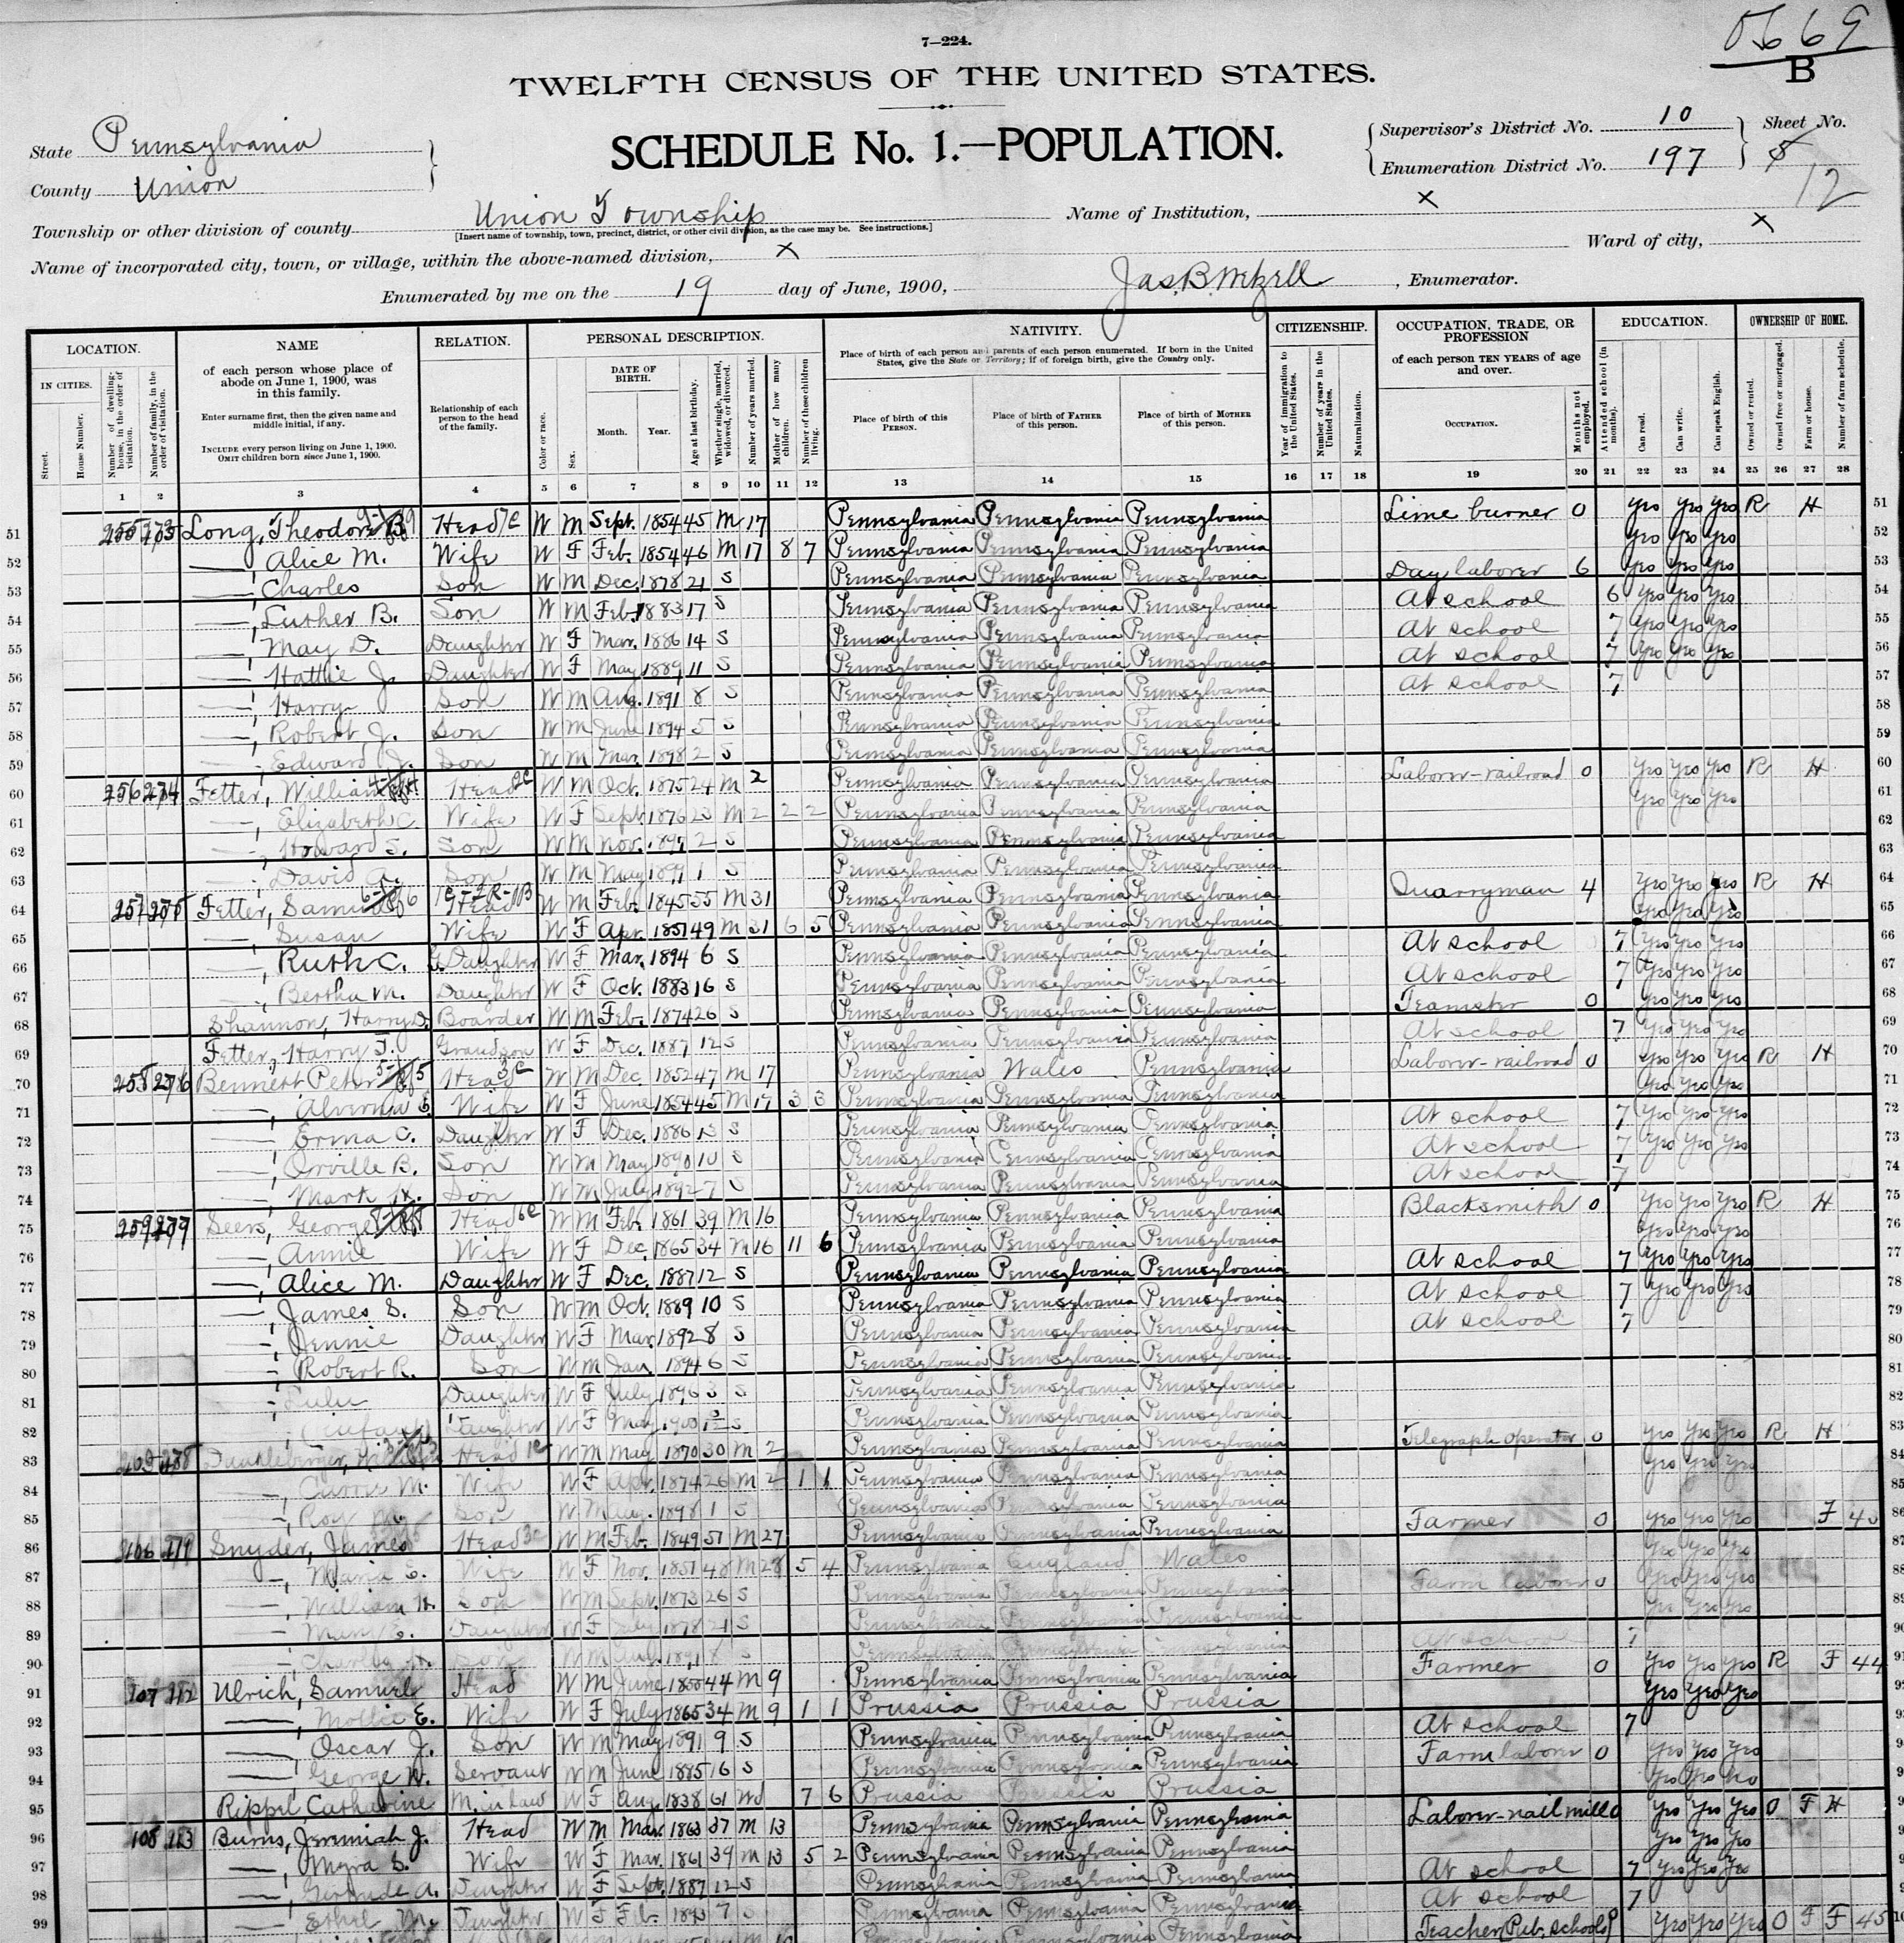 0669
7—224.
B
TWELFTH CENSUS OF THE UNITED STATES.
SCHEDULE No. 1.—POPULATION.
State Pennsylvania
County Union
Supervisor's District No. 10
Enumeration District No. 197
Sheet No.
12
Township or other division of county Union Township
[Insert name of township, town, precinct, district, or other civil division, as the case may be. See instructions.]
Name of Institution, X
Name of incorporated city, town, or village, within the above-named division, X
Ward of city, X
Enumerated by me on the 19 day of June, 1900, Jas. B. , Enumerator.
LOCATION. NAME RELATION. PERSONAL DESCRIPTION. NATIVITY. CITIZENSHIP. OCCUPATION, TRADE, OR PROFESSION EDUCATION. OWNERSHIP OF HOME.
IN CITIES.
Street.
House Number.
Number of dwelling-house, in the order of visitation.
Number of family, in the order of visitation.
of each person whose place of abode on June 1, 1900, was in this family.
Enter surname first, then the given name and middle initial, if any.
INCLUDE every person living on June 1, 1900.
OMIT children born since June 1, 1900.
Relationship of each person to the head of the family.
Color or race.
Sex.
DATE OF BIRTH.
Month. Year.
Age at last birthday.
Whether single, married, widowed, or divorced.
Number of years married.
Mother of how many children.
Number of these children living.
Place of birth of each person and parents of each person enumerated. If born in the United States, give the State or Territory; if of foreign birth, give the Country only.
Place of birth of this PERSON.
Place of birth of FATHER of this person.
Place of birth of MOTHER of this person.
Year of immigration to the United States.
Number of years in the United States.
Naturalization.
of each person TEN YEARS of age and over.
OCCUPATION.
Months not employed.
Attended school (in months).
Can read.
Can write.
Can speak English.
Owned or rented.
Owned free or mortgaged.
Farm or house.
Number of farm schedule.
1 2 3 4 5 6 7 8 9 10 11 12 13 14 15 16 17 18 19 20 21 22 23 24 25 26 27 28
51 255 273 Long, Theodore B. Head W M Sept. 1854 45 M 17 Pennsylvania Pennsylvania Pennsylvania Lime burner 0 yes yes yes R H 51
52 —, Alice M. Wife W F Feb. 1854 46 M 17 8 7 Pennsylvania Pennsylvania Pennsylvania yes yes yes 52
53 —, Charles Son W M Dec. 1878 21 S Pennsylvania Pennsylvania Pennsylvania Day laborer 6 yes yes yes 53
54 —, Luther B. Son W M Feb. 1883 17 S Pennsylvania Pennsylvania Pennsylvania At school 6 yes yes yes 54
55 —, May D. Daughter W F Mar. 1886 14 S Pennsylvania Pennsylvania Pennsylvania At school 7 yes yes yes 55
56 —, Hattie J. Daughter W F May 1889 11 S Pennsylvania Pennsylvania Pennsylvania At school 7 yes yes yes 56
57 —, Harry Son W M Aug. 1891 8 S Pennsylvania Pennsylvania Pennsylvania At school 7 57
58 —, Robert J. Son W M June 1894 5 S Pennsylvania Pennsylvania Pennsylvania 58
59 —, Edward J. Son W M Mar. 1898 2 S Pennsylvania Pennsylvania Pennsylvania 59
60 256 274 Fetter, William Head W M Oct. 1875 24 M 2 Pennsylvania Pennsylvania Pennsylvania Laborer-railroad 0 yes yes yes R H 60
61 —, Elizabeth C. Wife W F Sept. 1876 23 M 2 2 2 Pennsylvania Pennsylvania Pennsylvania yes yes yes 61
62 —, Howard S. Son W M Nov. 1897 2 S Pennsylvania Pennsylvania Pennsylvania 62
63 —, David A. Son W M May 1899 1 S Pennsylvania Pennsylvania Pennsylvania 63
64 257 275 Fetter, Samuel Head W M Feb. 1845 55 M 31 Pennsylvania Pennsylvania Pennsylvania Quarryman 4 yes yes yes R H 64
65 —, Susan Wife W F Apr. 1851 49 M 31 6 5 Pennsylvania Pennsylvania Pennsylvania yes yes yes 65
66 —, Ruth C. G. Daughter W F Mar. 1894 6 S Pennsylvania Pennsylvania Pennsylvania At school 7 yes yes yes 66
67 —, Bertha M. Daughter W F Oct. 1883 16 S Pennsylvania Pennsylvania Pennsylvania At school 7 yes yes yes 67
68 Shannon, Harry D. Boarder W M Feb. 1874 26 S Pennsylvania Pennsylvania Pennsylvania Teamster 0 yes yes yes 68
69 Fetter, Harry F. Grandson W F Dec. 1887 12 S Pennsylvania Pennsylvania Pennsylvania At school 7 yes yes yes 69
70 258 276 Bennett Peter Head W M Dec. 1852 47 M 17 Pennsylvania Wales Pennsylvania Laborer-railroad 0 yes yes yes R H 70
71 —, Alverna Wife W F June 1854 45 M 17 3 3 Pennsylvania Pennsylvania Pennsylvania yes yes yes 71
72 —, Erma C. Daughter W F Dec. 1886 13 S Pennsylvania Pennsylvania Pennsylvania At school 7 yes yes yes 72
73 —, Orville B. Son W M May 1890 10 S Pennsylvania Pennsylvania Pennsylvania At school 7 yes yes yes 73
74 —, Mark H. Son W M July 1892 7 S Pennsylvania Pennsylvania Pennsylvania At school 7 74
75 259 277 Seers, George Head W M Feb. 1861 39 M 16 Pennsylvania Pennsylvania Pennsylvania Blacksmith 0 yes yes yes R H 75
76 —, Annie Wife W F Dec. 1865 34 M 16 11 6 Pennsylvania Pennsylvania Pennsylvania yes yes yes 76
77 —, Alice M. Daughter W F Dec. 1887 12 S Pennsylvania Pennsylvania Pennsylvania At school 7 yes yes yes 77
78 —, James S. Son W M Oct. 1889 10 S Pennsylvania Pennsylvania Pennsylvania At school 7 yes yes yes 78
79 —, Jennie Daughter W F Mar. 1892 8 S Pennsylvania Pennsylvania Pennsylvania At school 7 79
80 —, Robert R. Son W M Jan. 1894 6 S Pennsylvania Pennsylvania Pennsylvania 80
81 —, Lulu Daughter W F July 1896 3 S Pennsylvania Pennsylvania Pennsylvania 81
82 Daughter W F May 1900 S Pennsylvania Pennsylvania Pennsylvania 82
83 278 Head W M May 1870 30 M 2 Pennsylvania Pennsylvania Pennsylvania Telegraph operator 0 yes yes yes R H 83
84 —, M. Wife W F Apr. 1874 26 M 2 1 1 Pennsylvania Pennsylvania Pennsylvania yes yes yes 84
85 —, Roy Son W M Aug. 1898 1 S Pennsylvania Pennsylvania Pennsylvania 85
86 106 279 Snyder, James Head W M Feb. 1849 51 M 27 Pennsylvania Pennsylvania Pennsylvania Farmer 0 yes yes yes F 86
87 —, Maria E. Wife W F Nov. 1851 48 M 28 5 4 Pennsylvania England Wales yes yes yes 87
88 —, William H. Son W M Sept. 1873 26 S Pennsylvania Pennsylvania Pennsylvania Farm laborer 0 yes yes yes 88
89 —, Mary E. Daughter W F July 1878 21 S Pennsylvania Pennsylvania Pennsylvania yes yes yes
90 —, Charles Son W M Aug. 1891 8 S Pennsylvania Pennsylvania Pennsylvania At school 7 90
91 107 112 Ulrich, Samuel Head W M June 1855 44 M 9 Pennsylvania Pennsylvania Pennsylvania Farmer 0 yes yes yes R F 44
92 —, Mollie E. Wife W F July 1865 34 M 9 1 1 Prussia Prussia Prussia yes yes yes
93 —, Oscar J. Son W M May 1891 9 S Pennsylvania Pennsylvania Pennsylvania At school 7
94 —, George W. Servant W M June 1885 16 S Pennsylvania Pennsylvania Pennsylvania Farm laborer 0 yes yes yes
95 Rippel Catharine M. in law W F Aug. 1838 61 Wd 7 6 Prussia Prussia Prussia yes yes no
96 108 113 Burns, Jeremiah J. Head W M Mar. 1863 37 M 13 Pennsylvania Pennsylvania Pennsylvania Laborer-nail mill 0 yes yes yes O F H
97 —, Myra S. Wife W F Mar. 1861 39 M 13 5 2 Pennsylvania Pennsylvania Pennsylvania yes yes yes
98 —, Gertrude A. Daughter W F Sept. 1887 12 S Pennsylvania Pennsylvania Pennsylvania At school 7 yes yes yes
99 —, Ethel M. Daughter W F Feb. 1893 7 S Pennsylvania Pennsylvania Pennsylvania At school 7
Teacher (Pub. Schools) yes yes yes O F F 45